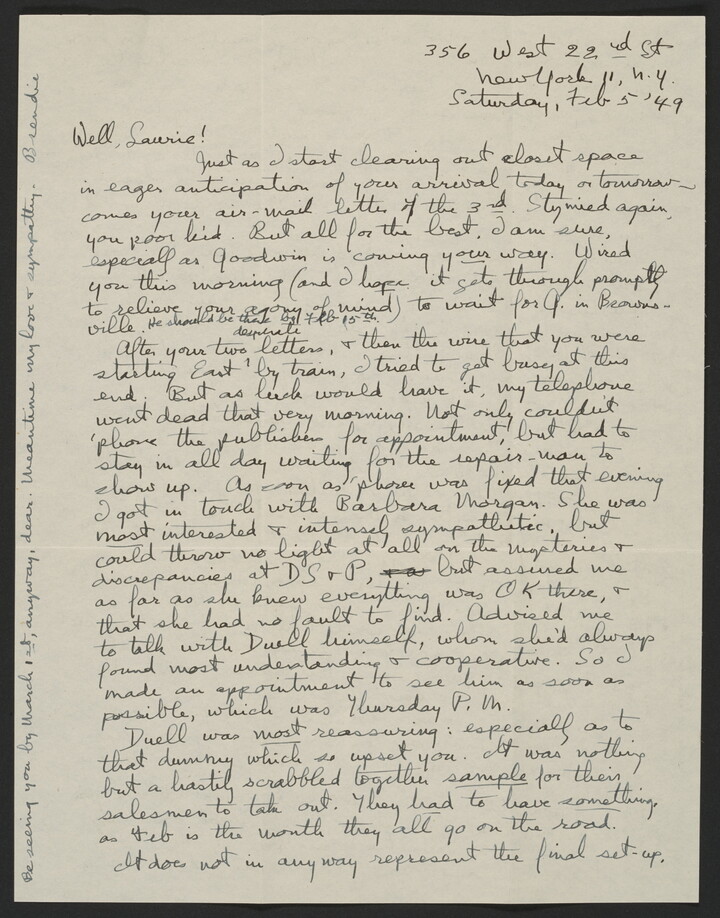 356 West 22nd St
New York 11, N.Y.
Saturday, Feb 5 '49
Well, Laurie!
Just as I start clearing out closet space
in eager anticipation of your arrival today or tomorrow—
comes your air-mail letter of the 3rd. Stymied again,
you poor kid. But all for the best, I am sure,
especially as Goodwin is coming your way. Wired
you this morning (and I hope it gets through promptly
to relieve your agony of mind) to wait for G. in Browns-
ville. He should be there by Feb 15th.
desperate
After your two letters, & then the wire that you were
starting East by train, I tried to get busy at this
end. But as luck would have it, my telephone
went dead that very morning. Not only couldn't
'phone the publishers for appointment, but had to
stay in all day waiting for the repair-man to
show up. As soon as 'phone was fixed that evening
I got in touch with Barbara Morgan. She was
most interested & intensely sympathetic, but
could throw no light at all on the mysteries &
discrepancies at DS&P, but assured me
as far as she knew everything was OK there, &
that she had no fault to find. Advised me
to talk with Duell himself, whom she'd always
found most understanding & cooperative. So I
made an appointment to see him as soon as
possible, which was Thursday P.M.
Duell was most reassuring: especially as to
that dummy which so upset you. It was nothing
but a hastily scrabbled together sample for their
salesmen to take out. They had to have something,
as Feb is the month they all go on the road.
It does not in anyway represent the final set-up.
Be seeing you by March 1st, anyway, dear. Meantime my love & sympathy - Brendie